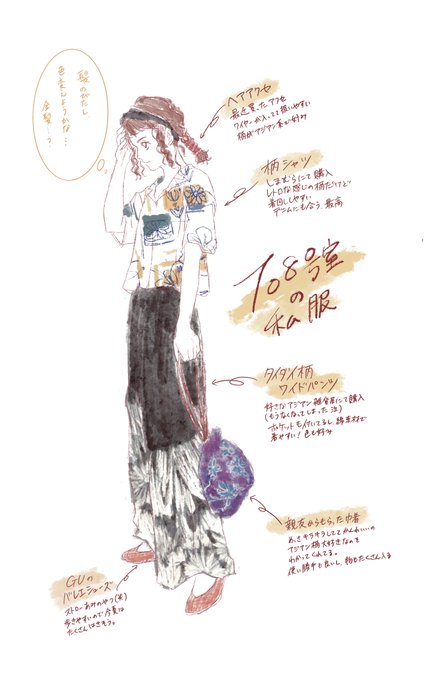 髪のびたし
色変えようかな…
金髪…?
ヘアアクセ
最近買ったアクセ
ワイヤーが入ってて扱いやすい
柄がアジアン系で好み
柄シャツ
しまむらにて購入
レトロな感じの柄だけど
着回ししやすい
デニムにも合う 最高
108号室
の
私服
タイダイ柄
ワイドパンツ
好きなアジアン雑貨屋にて購入
(もうなくなってしまった 泣)
ポケットも付いてるし、綿素材で
着やすい!色も好み
親友からもらった巾着
めっさキラキラしててかわいいの
アジアン柄大好きなのを
わかってくれてる。
使い勝手も良いし、物もたくさん入る
GUの
バレエシューズ
ストローあみのやつ(赤)
歩きやすいので今夏は
たくさんはきそう。